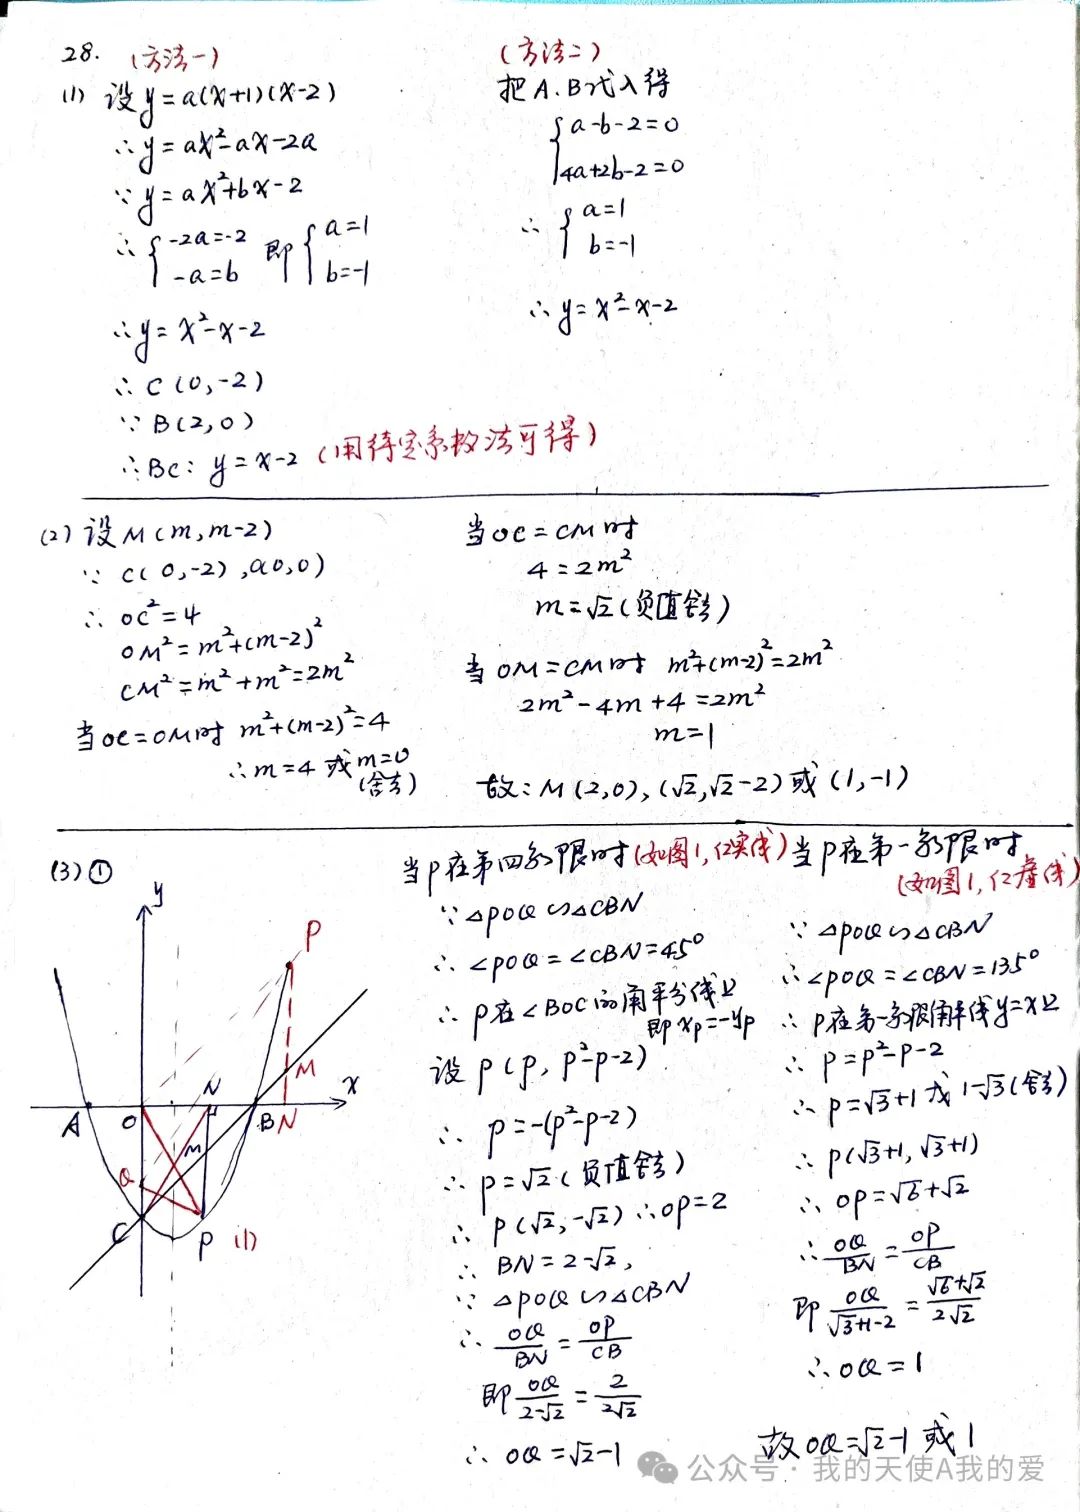 28. (方法一)
(1) 设y=a(x+1)(x-2)
∴y=ax²-ax-2a
∵y=ax²+bx-2
∴{-2a=-2 -a=b 即{a=1 b=-1
∴y=x²-x-2
∴C(0,-2)
∵B(2,0)
∴BC: y=x-2 (用待定系数法可得)
(方法二)
把A.B代入得
{a-b-2=0
4a+2b-2=0
∴{a=1
b=-1
∴y=x²-x-2
(2) 设M(m,m-2)
∵C(0,-2),O(0,0)
∴OC²=4
OM²=m²+(m-2)²
CM²=m²+m²=2m²
当OC=OM时 m²+(m-2)²=4
∴m=4 或m=0
(舍去)
当OC=CM时
4=2m²
m=√2(负值舍去)
当OM=CM时 m²+(m-2)²=2m²
2m²-4m+4=2m²
m=1
故:M(2,0),(√2,√2-2)或(1,-1)
(3)①
y
P
M
N
x
A
O
B
N
M
Q
C
P
(1)
当P在第四象限时(如图1,红实线)
∵△POQ∽△CBN
∴∠POQ=∠CBN=45°
∴P在∠BOC的角平分线上
即xp=-yp
设P(p,p²-p-2)
∴p=-(p²-p-2)
∴p=√2(负值舍去)
∴P(√2,-√2)∴OP=2
∴BN=2-√2,
∵△POQ∽△CBN
∴OQ/BN=OP/CB
即OQ/2-√2=2/2√2
∴OQ=√2-1
当P在第一象限时
(如图1,红虚线)
∵△POQ∽△CBN
∴∠POQ=∠CBN=135°
∴P在第一象限角平线y=x上
∴p=p²-p-2
∴p=√3+1或1-√3(舍去)
∴P(√3+1,√3+1)
∴OP=√6+√2
∴OQ/BN=OP/CB
即OQ/√3+1-2=√6+√2/2√2
∴OQ=1
故OQ=√2-1或1
公众号·我的天使A我的爱